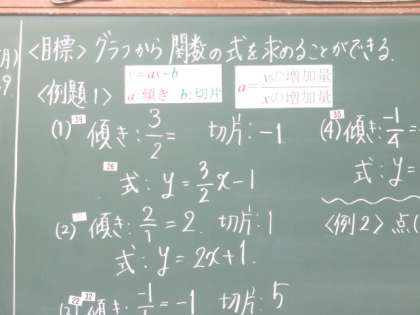 <目標> グラフから関数の式を求めることができる.
月)
9.
<例題1>
y = ax+b
a:傾き b:切片
a= yの増加量/xの増加量
(1) 傾き: 3/2 = 切片: -1
式: y = 3/2 x - 1
(2) 傾き: 2/1 = 2. 切片: 1
式: y = 2x + 1.
(3) 傾き: -1/1 = -1 切片: 5
(4) 傾き: -1/4 =
式: y =
<例2> 点(